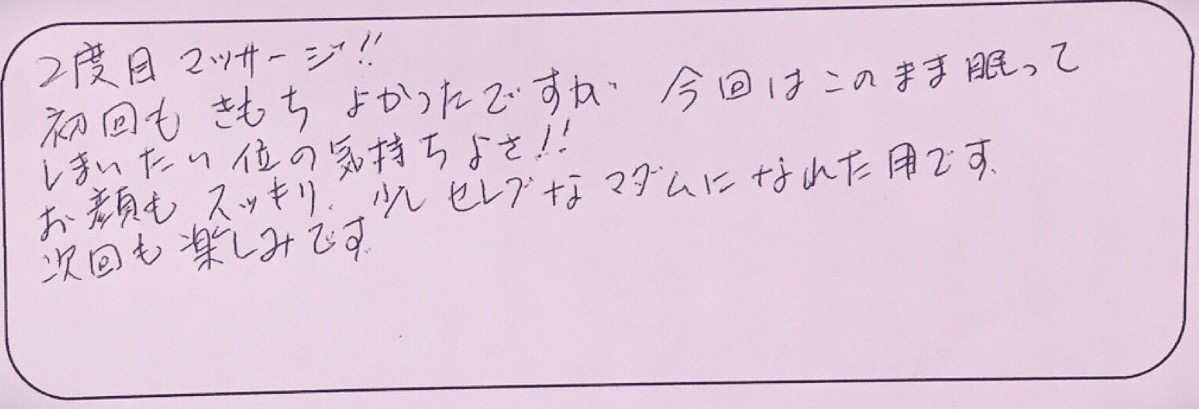 2度目 マッサージ!!
初回も きもち よかったですが 今回はこのまま眠って
しまいたい位の気持ちよさ!!
お顔も スッキリ、少し セレブなマダムになれた用です、
次回も楽しみです